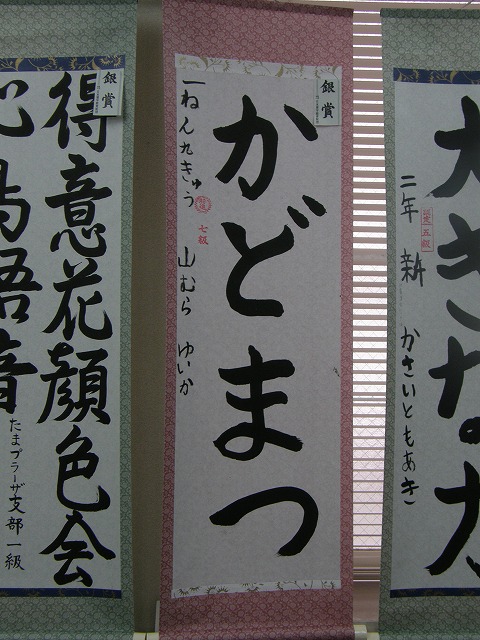 大きなた
二年 新 かさいともあき
五級
銀賞
かどまつ
一ねん九きゅう 山むら ゆいか
七級
銀賞
得意花顔色会
心鳥語音
たまプラーザ支部一級